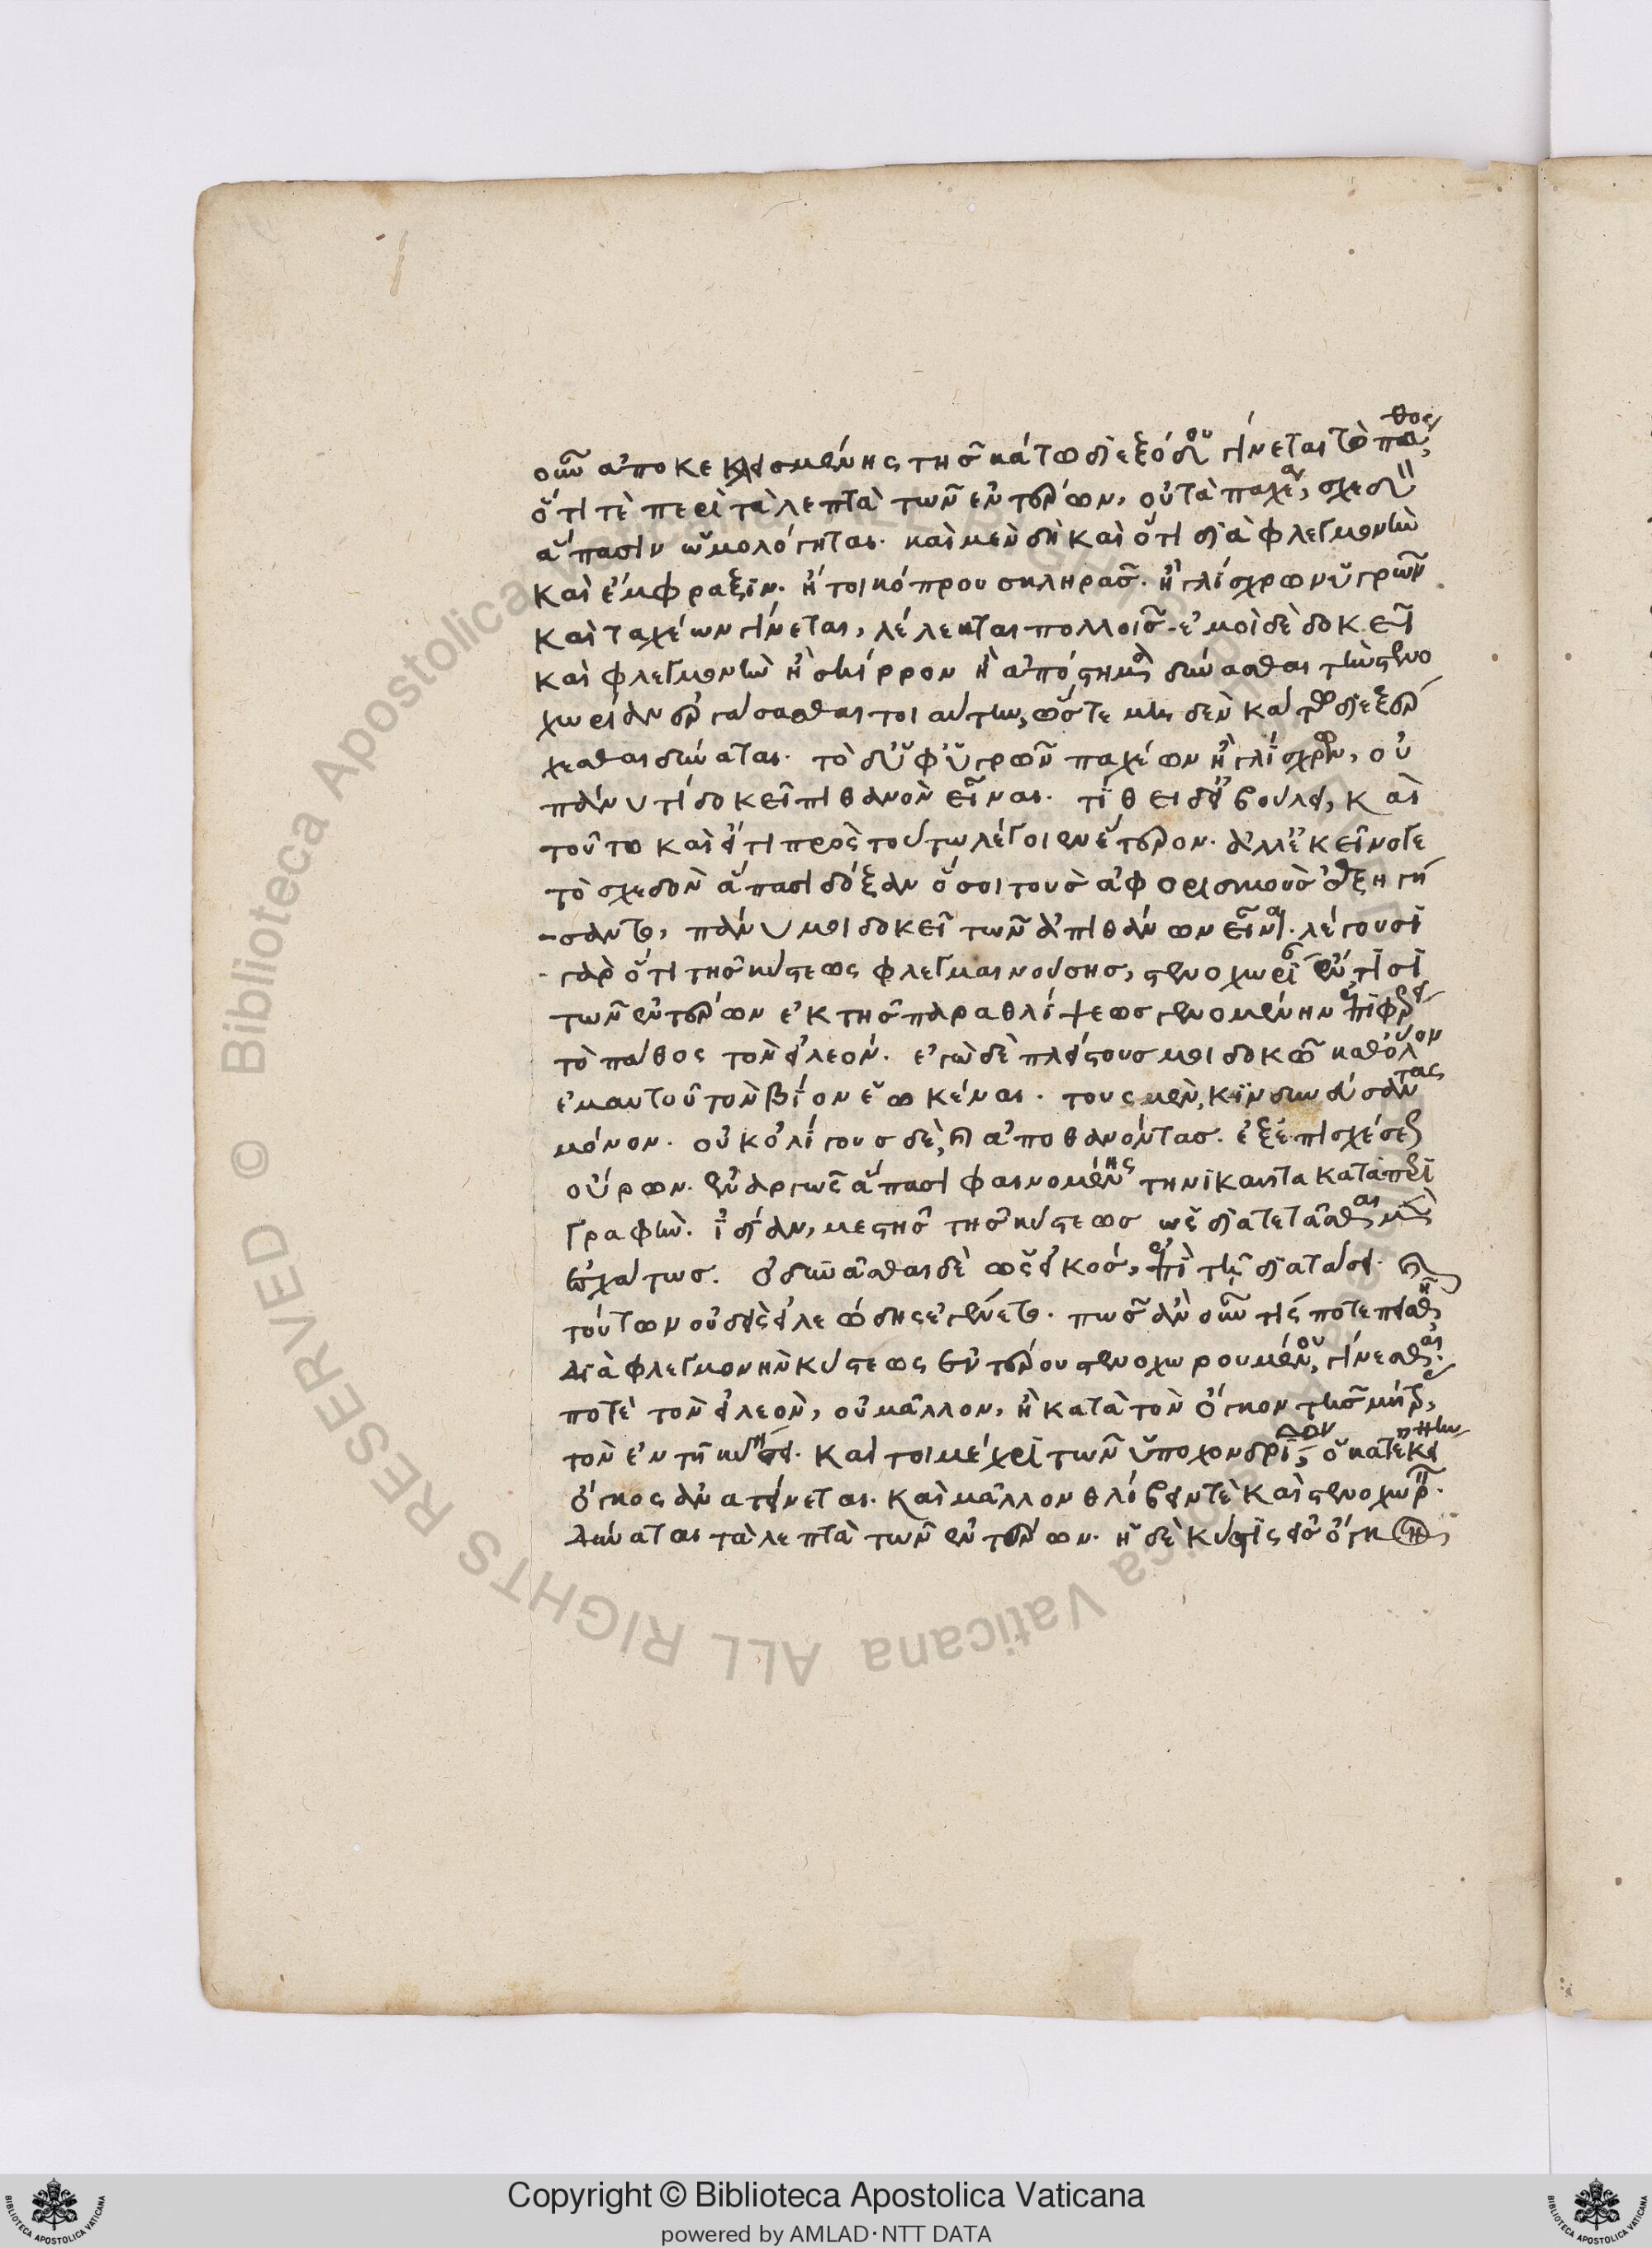 οὖν ἀποκεκλεισμένης τῆς κάτω διεξόδου γίνεται τὸ πάθος,
ὅτι τὲ περὶ τὰ λεπτὰ τῶν ἐντέρων, οὐ τὰ παχέα, σχεδὸν
ἅπασιν ὡμολόγηται. καὶ μὲν δὴ καὶ ὅτι διὰ φλεγμονὴν
καὶ ἔμφραξιν. ἤτοι κόπρου σκληρᾶς. ἢ γλίσχρων ὑγρῶν
καὶ παχέων γίνεται, λέλεκται πολλοῖς. ἐμοὶ δὲ δοκεῖ
καὶ φλεγμονὴν ἢ σκίρρον ἢ ἀπόστημα δύνασθαι τὴν στενο
χωρίαν ἐργάσασθαι τοιαύτην, ὥστε μηδὲν κάτω διεξέρ
χεσθαι δύναται. τὸ δ' ὑφ' ὑγρῶν παχέων ἢ γλίσχρων, οὐ
πάνυ τί δοκεῖ πιθανὸν εἶναι. τίθει δ' εἰ βούλει, καὶ
τοῦτο καὶ εἴ τι πρὸς τούτω λέγοιεν ἕτερον. ἀλλ' ἐκεῖνό γε
τὸ σχεδὸν ἅπασι δόξαν ὅσοι τοὺς ἀφορισμοὺς ἐξηγή
-σαντο, πάνυ μοι δοκεῖ τῶν ἀπιθάνων εἶναι. λέγουσι
- γὰρ ὅτι τῆς κύστεως φλεγμαινούσης, στενοχωρία ἔν τισι
τῶν ἐντέρων ἐκ τῆς παραθλίψεως γενομένην ἐπιφέρει
τὸ πάθος τὸν εἰλεόν. ἐγὼ δὲ πλείστους μοι δοκῶ καθ' ὅλον
ἐμαυτοῦ τὸν βίον ἑωκέναι. τους μὲν, κινδυνεύσαντας
μόνον. οὐκ ὀλίγους δὲ, καὶ ἀποθανόντας. ἐξ ἐπισχέσεως
οὔρων. ἐναργῶς ἅπασι φαινομένης τηνικαῦτα κατὰ περι
γραφὴν. ἰδίαν, μεστῆς τῆς κύστεως ὡς διατετάσθαι μὲν
ἐσχάτως. ὀδυνᾶσθαι δὲ ὡς εἰκός, ἐπὶ τῇ διατάσει. καὶ
τούτων οὐδεὶς εἰλεώδης ἐγένετο. πῶς ἂν οὖν τίς ποτε πεισθῆ
διὰ φλεγμονὴν κύστεως ἐντέρου στενοχωρουμένου, γίνεσθαί
ποτὲ τὸν εἰλεὸν, οὐ μᾶλλον, ἢ κατὰ τὸν ὄγκον τῆς μήτρας,
τὸν ἐν τῆ κυήσει. καί τοι μέχρι τῶν ὑποχονδρίων
ὄγκος ἀνατείνεται. καὶ μᾶλλον θλίβειν τὲ καὶ στενοχωρεῖν.
δύναται τὰ λεπτὰ τῶν ἐντέρων. ἡ δὲ κύστις εἰς ὄγκ